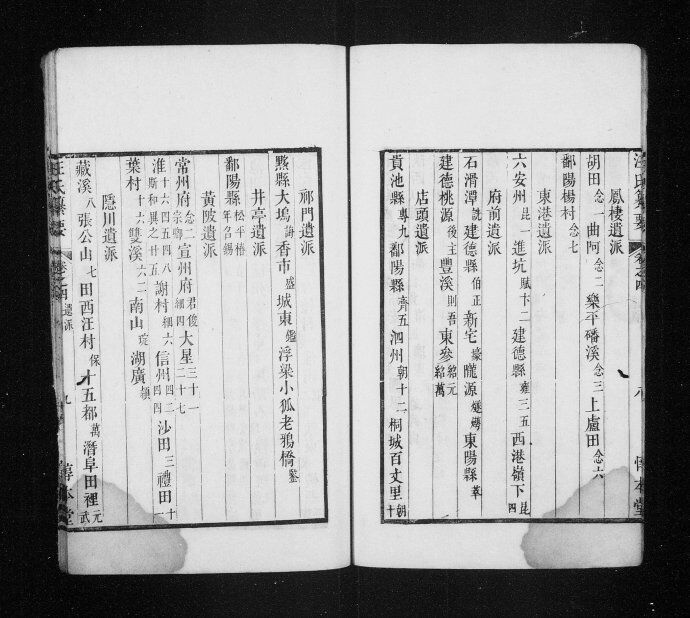 汪氏纂要 卷之四 八 惇本堂
鳳棲遺派
胡田念一曲阿念二樂平磻溪念三上盧田念六
鄱陽楊村念七
東港遺派
六安州昆一進坑賦卞二建德縣雍三五西港嶺下昆四
府前遺派
石滑潭説建德縣伯正新宅壕隴源東陽縣萃
建德桃源後主豐溪則吾東參紹元紹萬
店頭遺派
貴池縣專九鄱陽縣齊五泗州朝十二桐城百丈里朝十
祁門遺派
黟縣大塢海香市盛城東鑑浮梁小狐老鴉橋鑿
井亭遺派
鄱陽縣松平椿年名錫
黃陂遺派
常州府念二宗卿宣州府君俊細四大星三十一三十七
淮十六四五四八斯和異之廿五謝村細六信州四二四四沙田三禮田十一
葉村十六雙溪六二南山琁湖廣頴
隱川遺派
藏溪八張公山七田西汪村保十五都萬潛阜田裡元武
汪氏纂要 卷之四 遺派 九 惇本堂